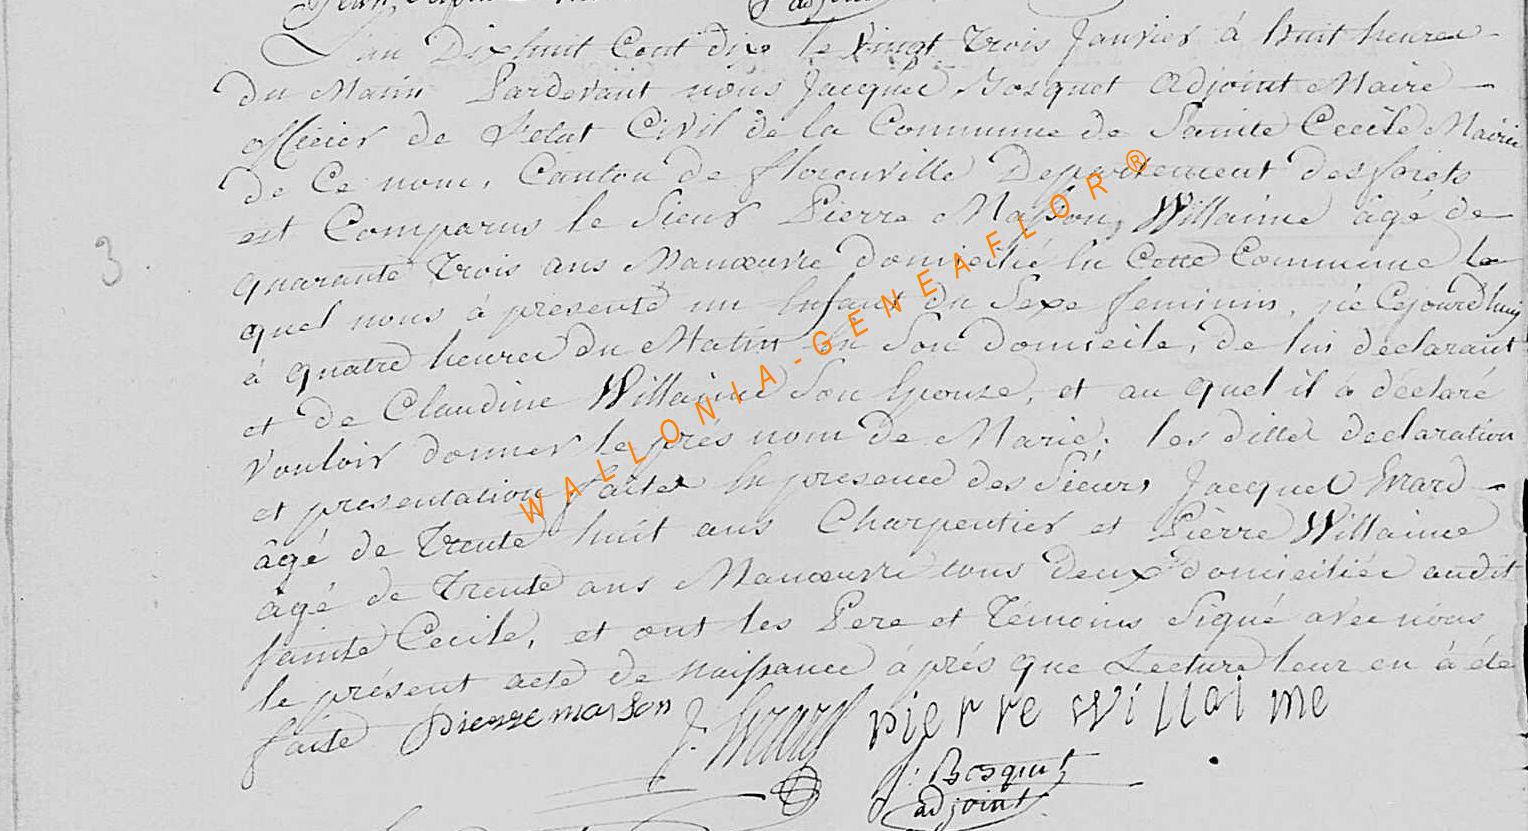 L'an Dixhuit Cent dix le vingt trois Janvier à huit heures
du Matin Pardevant nous Jacques Bosquet Adjoint Maire
officier de l'etat Civil de la Commune de Sainte Cecile Mairie
de Ce nom, Canton de florenville Departement des forêts
est Comparus le Sieur Pierre Masson, Willaime âgé de
quarante trois ans Manœuvre domicilié En Cette Commune le
quel nous à présenté un Enfant du Sexe feminin, née Cejourd'huy
à quatre heures du Matin En Son domicile, de lui déclarant
et de Claudine Willaime Son Epouse, et au quel il à déclaré
vouloir donner le prés nom de Marie; les dittes declaration
et presentation faites En presence des Sieurs Jacques Evrard
âgé de Trente huit ans Charpentier et Pièrre Willaime
âgé de Trente ans Manœuvre tous deux domiciliés audit
Sainte Cecile, et ont les Pere et Témoins Signé avec nous
le présent acte de naissance après que Lecture leur en à été
faite pierre masson J. Evrard pierre willaime
J. Bosquet
adjoint
3
WALLONIA-GENEAFLOR®